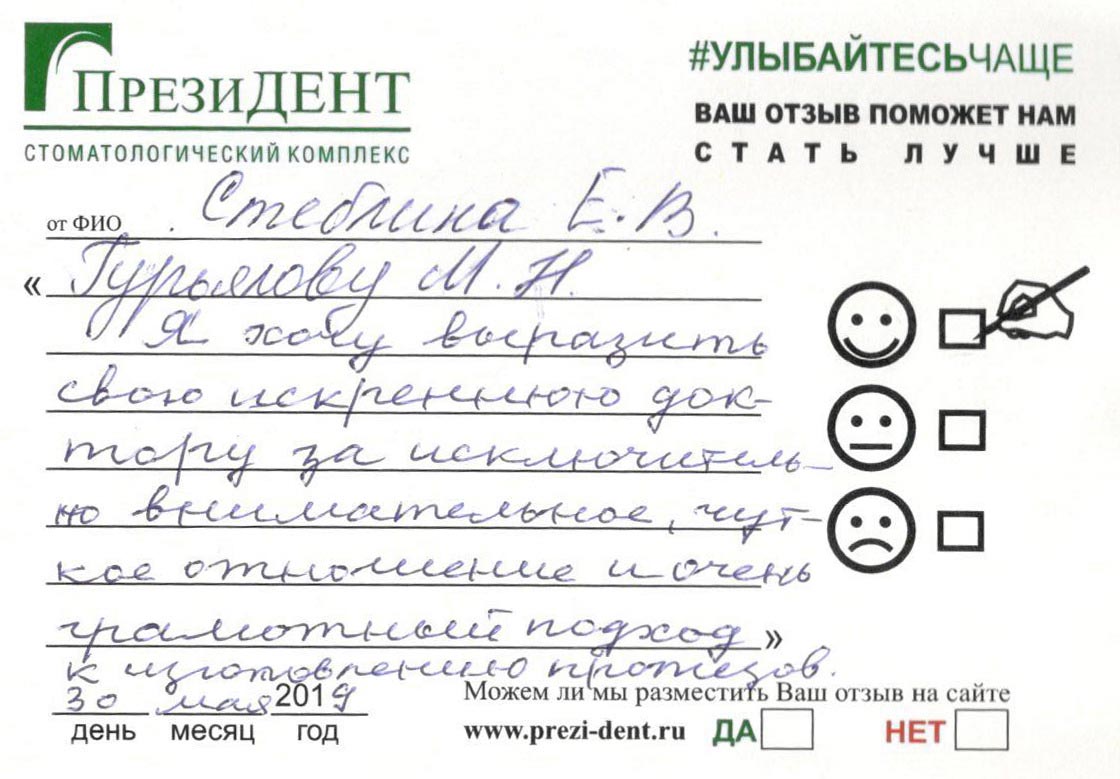 ПРЕЗИДЕНТ
СТОМАТОЛОГИЧЕСКИЙ КОМПЛЕКС
#УЛЫБАЙТЕСЬЧАЩЕ
ВАШ ОТЗЫВ ПОМОЖЕТ НАМ
СТАТЬ ЛУЧШЕ
от ФИО Стеблина Е.В.
« Гурьялову М.Н.
Я хочу выразить
свою искреннюю док-
тору за исключитель-
но внимательное, чут-
кое отношение и очень
грамотный подход »
к изготовлению протезов.
30 мая 2019
день месяц год
Можем ли мы разместить Ваш отзыв на сайте
www.prezi-dent.ru ДА НЕТ